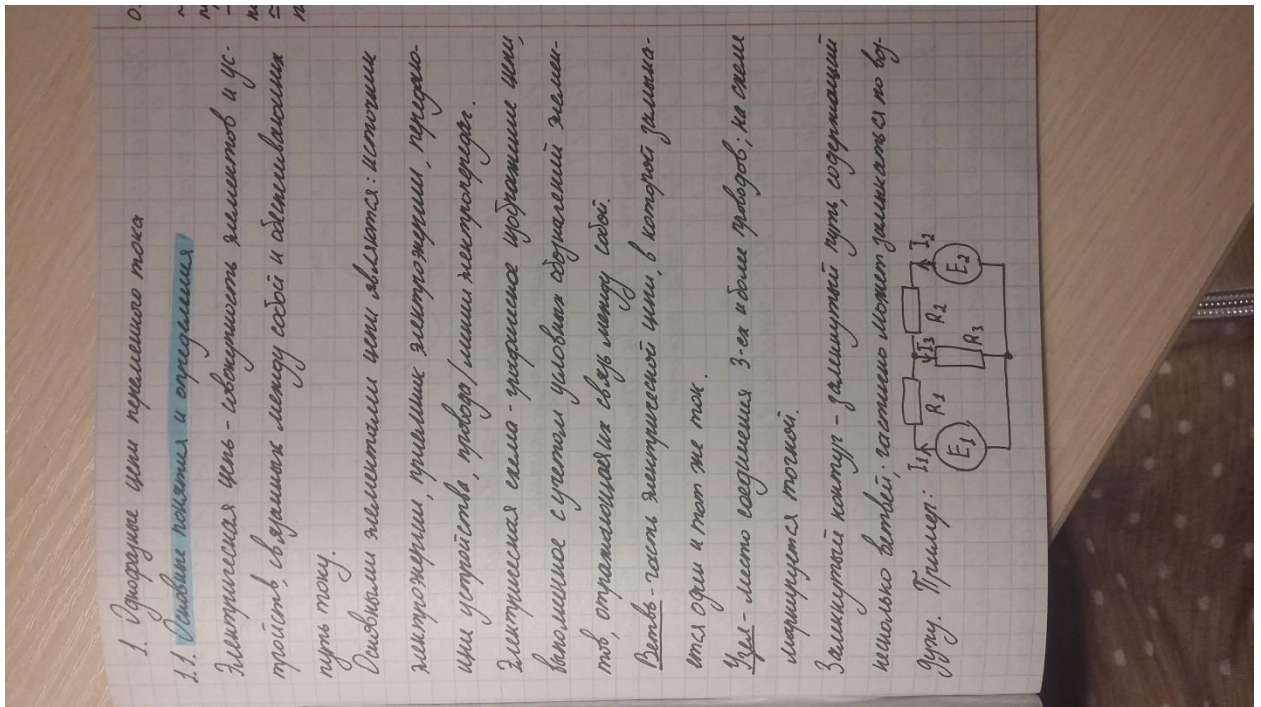 1. Однофазные цепи переменного тока
1.1. Основные понятия и определения
Электрическая цепь - совокупность элементов и ус-
тройств, связанных между собой и обеспечивающих
путь току.
Основными элементами цепи являются: источник
электроэнергии, приемник электроэнергии, передаю-
щие устройства, провода/линии электропередач.
Электрическая схема - графическое изображение цепи,
выполненное с учетом условных обозначений элемен-
тов, отражающая их связь между собой.
Ветвь - часть электрической цепи, в которой замыка-
ется один и тот же ток.
Узел - место соединения 3-ех и более проводов; на схеме
маркируется точкой.
Замкнутый контур - замкнутый путь, содержащий
несколько ветвей; частично может замыкаться по воз-
духу. Пример:
I₁ R₁ I₃ R₂ I₂
E₁ R₃ E₂